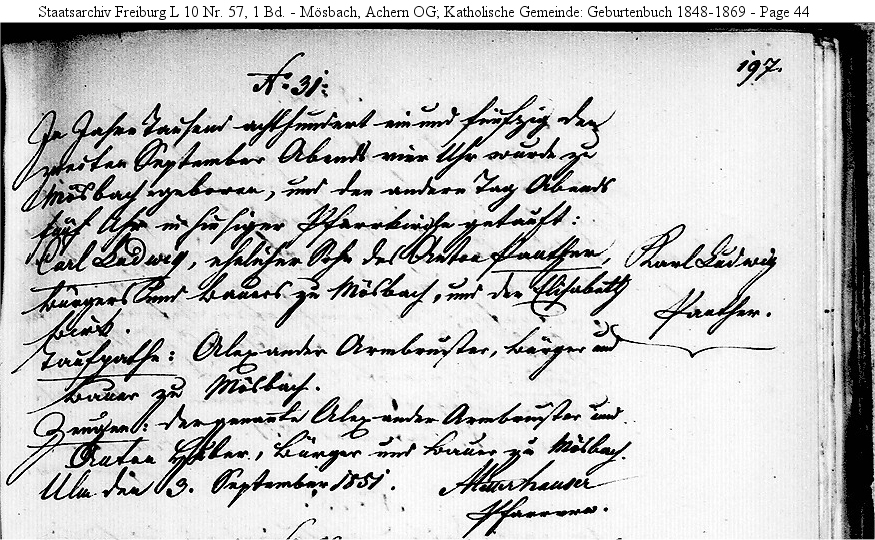 Staatsarchiv Freiburg L 10 Nr. 57, 1 Bd. - Mösbach, Achern OG; Katholische Gemeinde: Geburtenbuch 1848-1869 - Page 44
197.
No. 31.
Im Jahre Tausend achthundert ein und fünfzig den
zweiten September Abends vier Uhr wurde zu
Mösbach geboren, und den andern Tag Abends
fünf Uhr in hiesiger Pfarrkirche getauft:
Carl Ludwig, ehelicher Sohn des Anton Panther,
Bürgers und Bauers zu Mösbach, und der Elisabeth
Birk.
Karl Ludwig
Panther.
Taufpathe: Alexander Armbruster, Bürger und
Bauer zu Mösbach.
Zeugen: der genannte Alexander Armbruster und
Anton Huber, Bürger und Bauer zu Mösbach.
Ulm den 3. September 1851.
Pfarrverw.